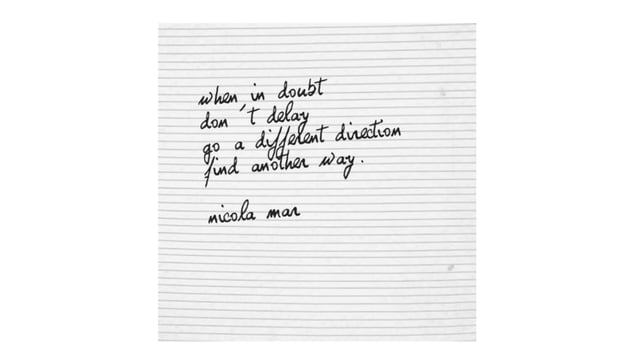 when in doubt
don't delay
go a different direction
find another way.
nicola mar